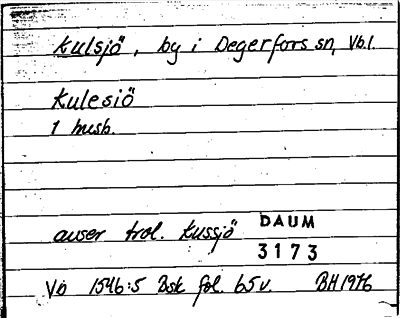 Kulsjö, by i Degerfors sn, Vb.l.
Kulesiö
1 husb.
avser trol. Kussjö
DAUM
3173
Vb 1546:5 Bsk fol. 65v. BH 1976